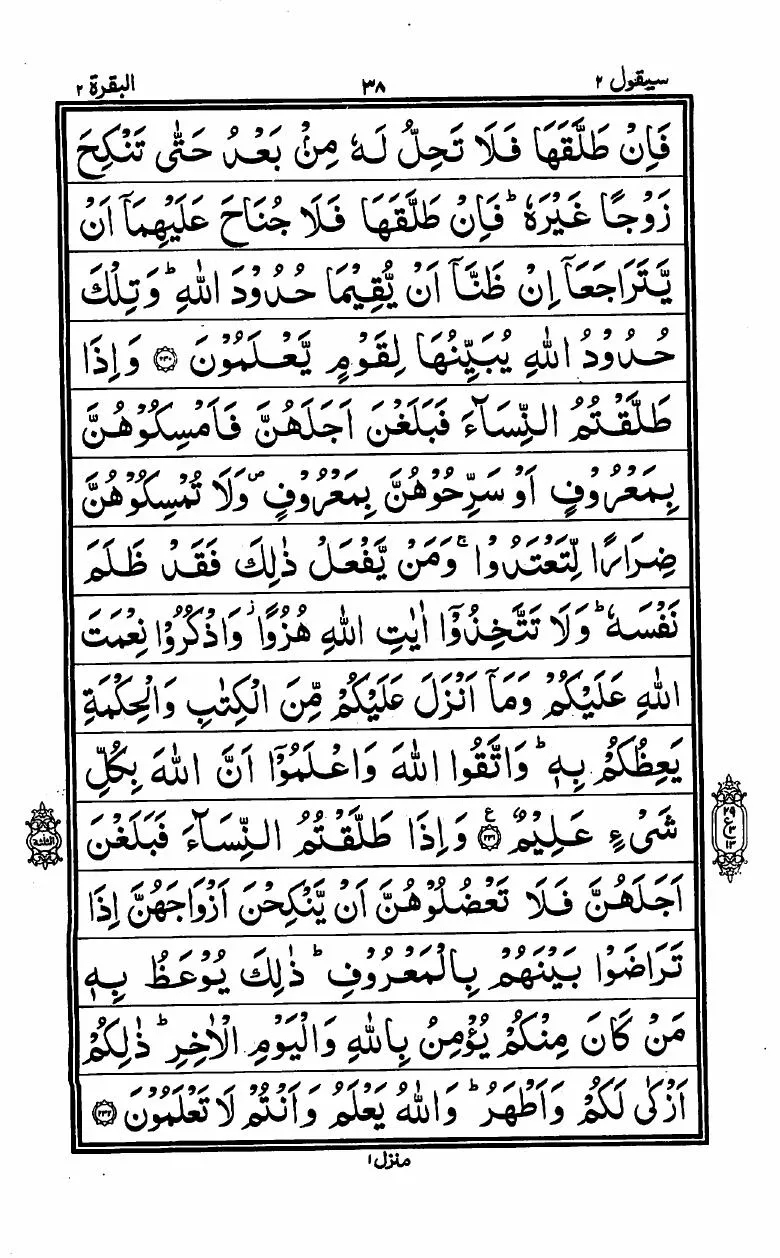 سيقول ٢
٣٨
البقرة ٢
فَاِنْ طَلَّقَهَا فَلَا تَحِلُّ لَهٗ مِنْۢ بَعْدُ حَتّٰى تَنْكِحَ
زَوْجًا غَيْرَهٗ ؕ فَاِنْ طَلَّقَهَا فَلَا جُنَاحَ عَلَيْهِمَاۤ اَنْ
يَّتَرَاجَعَاۤ اِنْ ظَنَّاۤ اَنْ يُّقِيْمَا حُدُوْدَ اللّٰهِ ؕ وَتِلْكَ
حُدُوْدُ اللّٰهِ يُبَيِّنُهَا لِقَوْمٍ يَّعْلَمُوْنَ ﴿۲۳۰﴾ وَاِذَا
طَلَّقْتُمُ النِّسَآءَ فَبَلَغْنَ اَجَلَهُنَّ فَاَمْسِكُوْهُنَّ
بِمَعْرُوْفٍ اَوْ سَرِّحُوْهُنَّ بِمَعْرُوْفٍ ۪ وَّلَا تُمْسِكُوْهُنَّ
ضِرَارًا لِّتَعْتَدُوْا ۚ وَمَنْ يَّفْعَلْ ذٰلِكَ فَقَدْ ظَلَمَ
نَفْسَهٗ ؕ وَلَا تَتَّخِذُوْۤا اٰيٰتِ اللّٰهِ هُزُوًا ؗ وَّاذْكُرُوْا نِعْمَتَ
اللّٰهِ عَلَيْكُمْ وَمَاۤ اَنْزَلَ عَلَيْكُمْ مِّنَ الْكِتٰبِ وَالْحِكْمَةِ
يَعِظُكُمْ بِهٖ ؕ وَاتَّقُوا اللّٰهَ وَاعْلَمُوْۤا اَنَّ اللّٰهَ بِكُلِّ
شَیْءٍ عَلِيْمٌ ﴿۲۳۱﴾ ع وَاِذَا طَلَّقْتُمُ النِّسَآءَ فَبَلَغْنَ
اَجَلَهُنَّ فَلَا تَعْضُلُوْهُنَّ اَنْ يَّنْكِحْنَ اَزْوَاجَهُنَّ اِذَا
تَرَاضَوْا بَيْنَهُمْ بِالْمَعْرُوْفِ ؕ ذٰلِكَ يُوْعَظُ بِهٖ
مَنْ كَانَ مِنْكُمْ يُؤْمِنُ بِاللّٰهِ وَالْيَوْمِ الْاٰخِرِ ؕ ذٰلِكُمْ
اَزْكٰى لَكُمْ وَاَطْهَرُ ؕ وَاللّٰهُ يَعْلَمُ وَاَنْتُمْ لَا تَعْلَمُوْنَ ﴿۲۳۲﴾
٢٩
ع ١٣
١٣
منزل ١